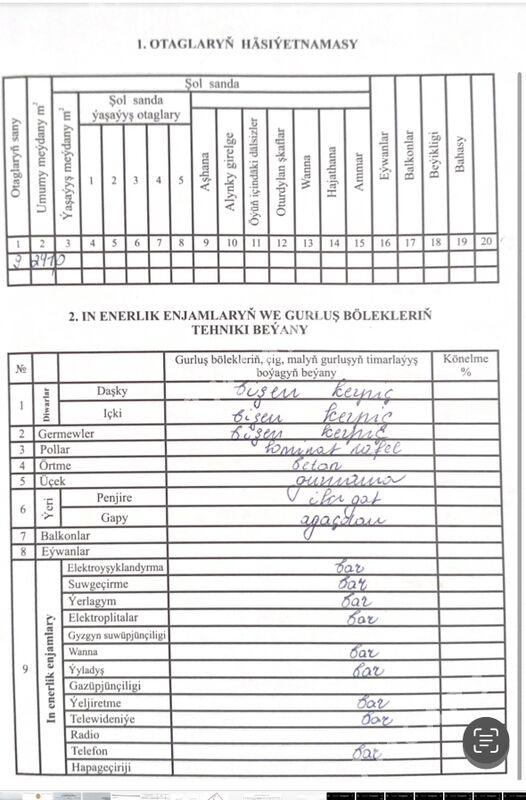 1. OTAGLARYŇ HÄSIÝETNAMASY
Otaglaryň sany
Umumy meýdany m²
Ýaşaýyş meýdany m²
Şol sanda
Şol sanda
ýaşaýyş otaglary
1 2 3 4 5
Aşhana
Alynky girelge
Öýüň içindäki dälsizler
Oturdylan şkaflar
Wanna
Hajathana
Ammar
Eýwanlar
Balkonlar
Beýikligi
Bahasy
1 2 3 4 5 6 7 8 9 10 11 12 13 14 15 16 17 18 19 20
2. IN ENERLIK ENJAMLARYŇ WE GURLUŞ BÖLEKLERIŇ
TEHNIKI BEÝANY
№ Gurluş bölekleriň, çig, malyň gurluşyň timarlaýyş
boýagyň beýany
Könelme
%
1 Diwarlar Daşky bişen kerpiç
Içki bişen kerpiç
2 Germewler bişen kerpiç
3 Pollar laminat
4 Örtme beton
5 Üçek
6 Ýeri Penjire iki gat
Gapy agaçdan
7 Balkonlar
8 Eýwanlar
9 In enerlik enjamlary Elektroyşyklandyrma bar
Suwgeçirme bar
Ýerlagym bar
Elektroplitalar bar
Gyzgyn suwüpjünçiligi
Wanna bar
Ýyladyş bar
Gazüpjünçiligi
Ýeljiretme bar
Telewideniýe bar
Radio
Telefon bar
Hapageçiriji